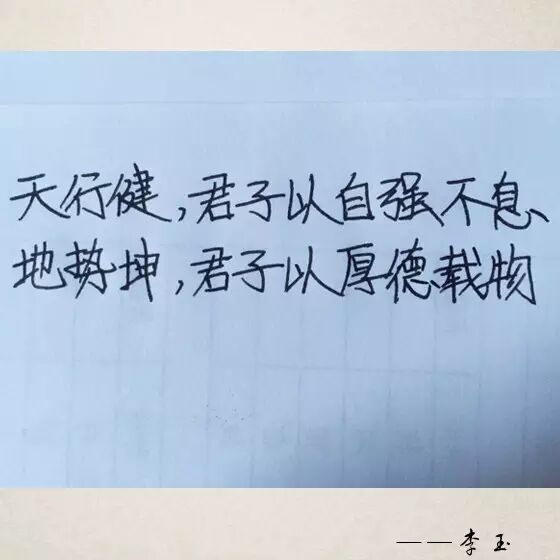 天行健,君子以自强不息、
地势坤,君子以厚德载物
——李玉